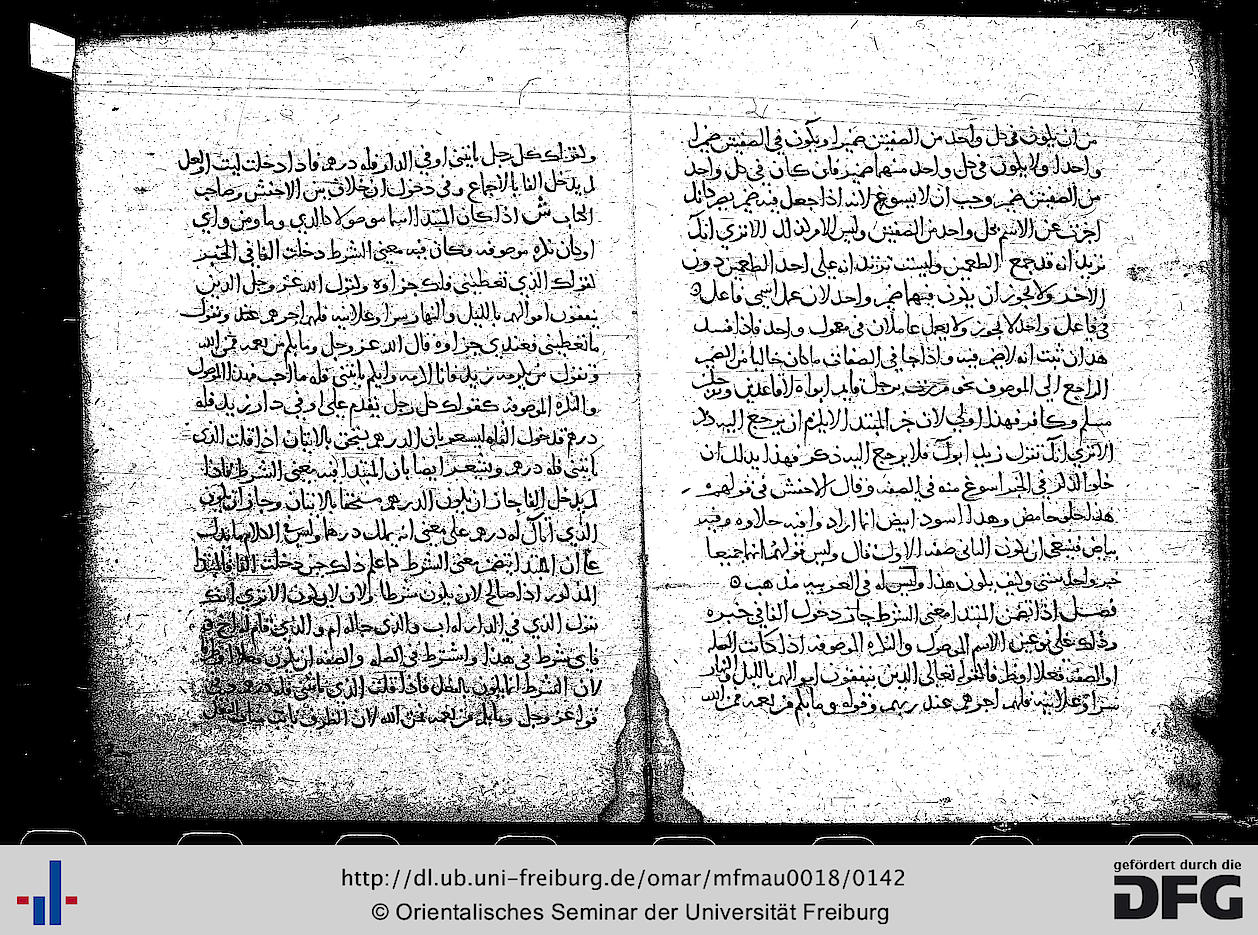 من ان يكون في كل واحد من الصفتين ضمير او يكون في الصفتين ضميرا
واحدا ولا يكون في كل واحد منهما ضمير فان كان في كل واحد
من الصفتين ضمير وجب ان لا يسوغ لانه اذا جعل فيه ضمير
اخبرت عن الاسم بكل واحد من الصفتين وليس الامر كذلك الا تري انك
تريد انه قد جمع الطعمين ولست تريد انه علي احد الطعمين دون
الاخر ولا يجوز ان يكون فيهما ضمير واحد لان عمل اسمي فاعل
في فاعل واحد لا يجوز ولا يعمل عاملان في معمول واحد فاذا فسد
هذان ثبت انه لا ضمير فيه واذا جا في الصفات ما كان خاليا من الضمير
الراجع الي الموصوف نحو مررت برجل قايم ابواه لا قاعدين ورجل
مسلم وكافر فهذا اولي لان خبر المبتدا لا يلزم ان يرجع اليه ذكر
الا تري انك تقول زيد ابوك فلا يرجع اليه ذكر فهذا يدلك ان
خلو الذكر في الخبر اسوغ منه في الصفه وقال الاخفش في قولهم
هذا حلو حامض وهذا اسود ابيض انما اراد وا فيه حلاوه وفيه
بياض فينبغي ان يكون الثاني صفه الاول قال وليس قولهم انهما جميعا
خبر واحد بشي وكيف يكون هذا وليس له في العربيه مذهب
فصل اذا تضمن المبتدا معني الشرط جاز دخول الفا في خبره
وذلك علي نوعين الاسم الموصول والنكره الموصوفه اذا كانت الصله
او الصفه فعلا او ظرفا كقوله تعالي الذين ينفقون اموالهم بالليل والنهار
سرا وعلانيه فلهم اجرهم عند ربهم وقوله وما بكم من نعمه فمن الله
وكقولك كل رجل ياتيني او في الدار فله درهم فاذا دخلت ليت او لعل
لم يدخل الفا بالاجماع وفي دخول ان خلاف بين الاخفش وصاحب
الكتاب ش اذا كان المبتدا اسما موصولا كالذي وما ومن واي
او كان نكره موصوفه وكان فيه معني الشرط دخلت الفا في الخبر
كقولك الذي تعطيني فلك جزاوه وكقول الله عز وجل الذين
ينفقون اموالهم بالليل والنهار سرا وعلانيه فلهم اجرهم عند وتقول
ما تعطيني فعندي جزاوه قال الله عز وجل وما بكم من نعمه فمن الله
وتقول من يكرمه زيد فانا اكرمه وايهم ياتيني فله ما احب فهذا الموصول
والنكره الموصوفه كقولك كل رجل يقدم علي او في دار زيد فله
درهم فدخول الفا هاهنا يشعر بان الدرهم يستحق بالاتيان اذا قلت الذي
ياتيني فله درهم ويشعر ايضا بان المبتدا فيه معني الشرط فاذا
لم يدخل الفا جاز ان يكون الدرهم مستحقا بالاتيان وجاز ان يكون
الذي اتاك له درهم علي معني انه يملك درهما وليس في الكلام ما يدلك
علي ان المبتدا يتضمن معني الشرط
المذكور اذا صالح لان يكون شرطا ولان لا يكون الا تري انك
تقول الذي في الدار له اب والذي
فاي شرط في هذا واشترط في الصله والصفه ان يكون فعلا او ظرفا
لان الشرط انما يكون بالفعل فاذا قلت الذي ياتيني فله درهم
قوله عز وجل وما بكم من نعمه فمن الله لان الظرف
http://dl.ub.uni-freiburg.de/omar/mfmau0018/0142
© Orientalisches Seminar der Universität Freiburg
gefördert durch die
DFG